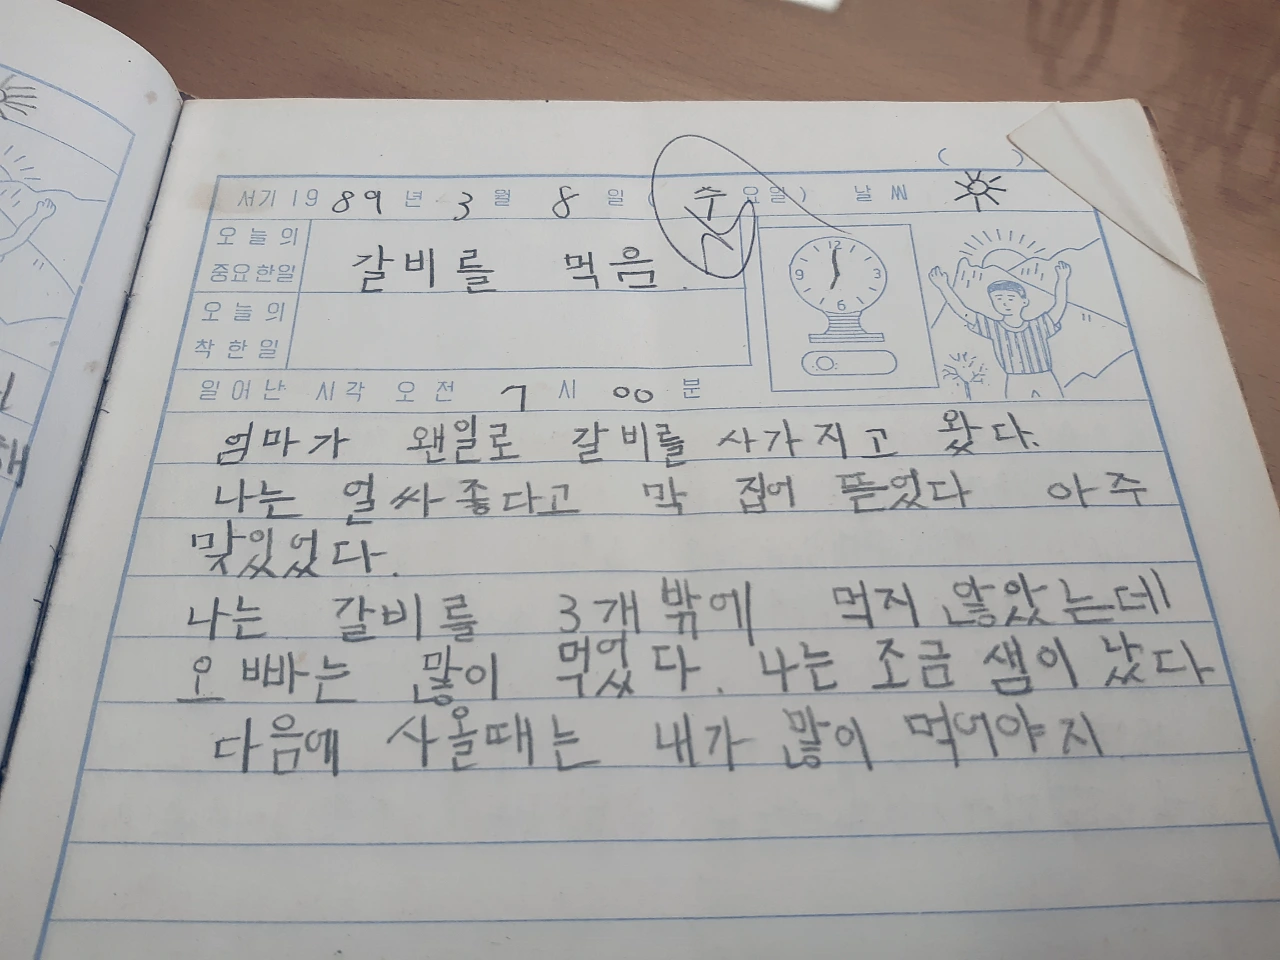 ( )
서기 19 89 년 3 월 8 일 ( 수 요일) 날 씨
오늘의
중요한일
갈비를 먹음.
오늘의
착한일
12
9 3
6
일어난 시각 오전 7 시 00 분
엄마가 왠일로 갈비를 사가지고 왔다.
나는 얼싸좋다고 막 집어 뜯었다 아주
맞있었다.
나는 갈비를 3개 밖에 먹지 않았는데
오빠는 많이 먹었다. 나는 조금 샘이 났다
다음에 사올때는 내가 많이 먹어야지
해